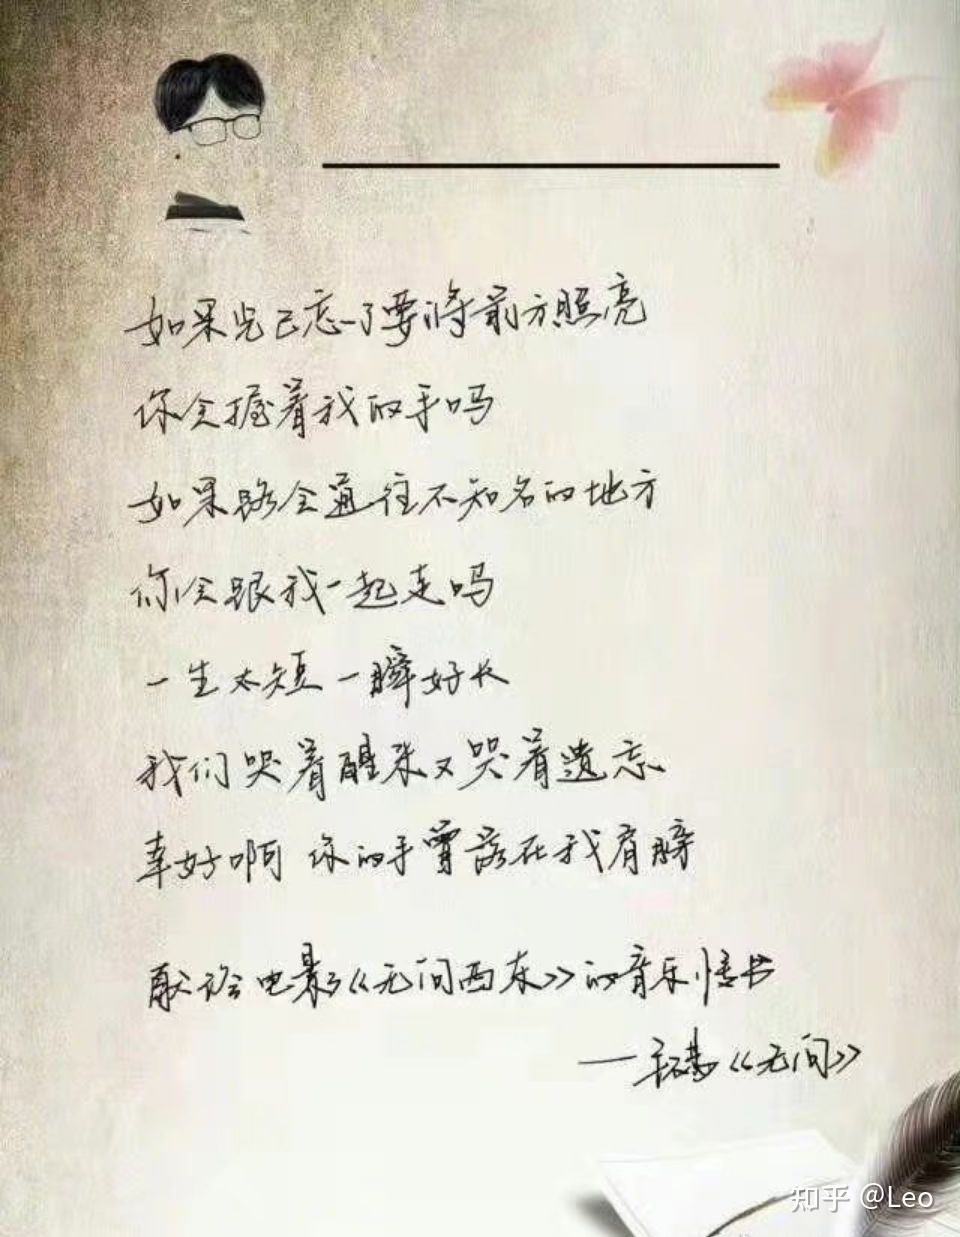 如果光已忘了要将前方照亮
你会握着我的手吗
如果路会通往不知名的地方
你会跟我一起走吗
一生太短 一瞬好长
我们哭着醒来又哭着遗忘
幸好啊 你的手曾落在我肩膀
献给电影《无问西东》的音乐情书
——毛不易《无问》
知乎 @Leo